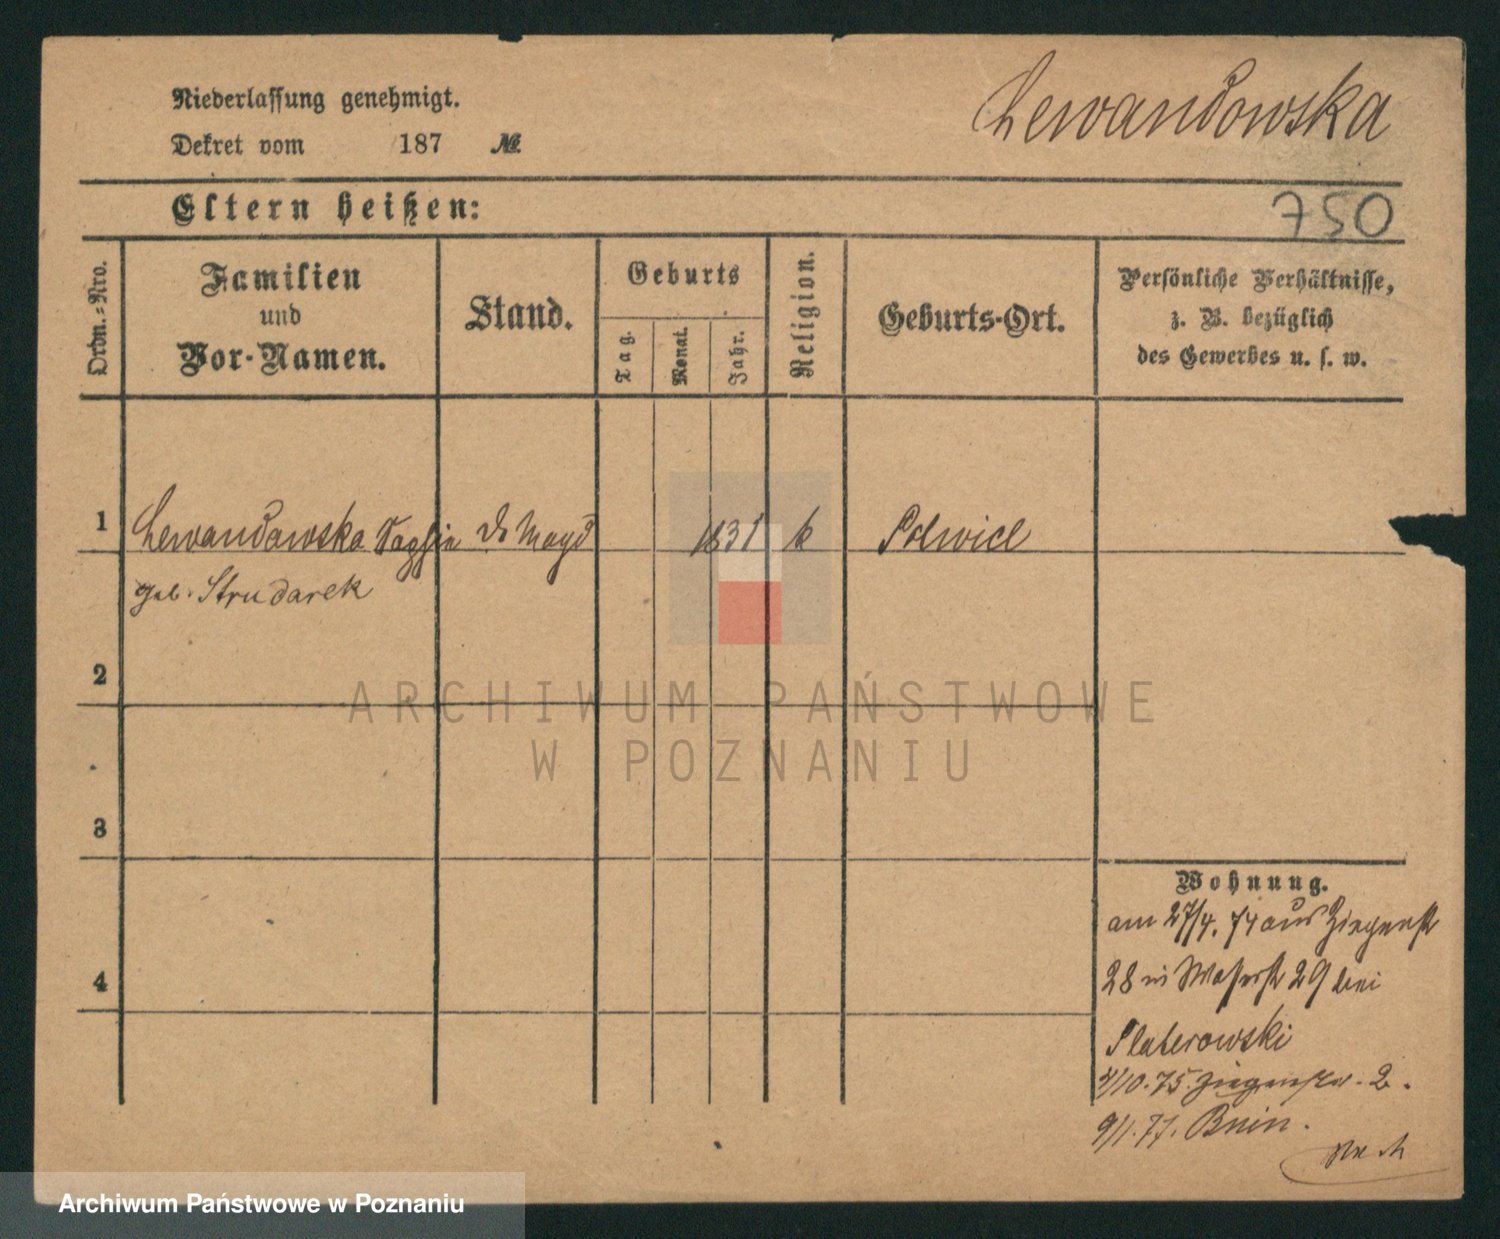 Niederlassung genehmigt.
Lewandowska
Dekret vom 187 №.
Eltern heißen:
750
Ordn.-Nro.
Familien
und
Vor-Namen.
Stand.
Geburts
Tag.
Monat.
Jahr.
Religion.
Geburts-Ort.
Persönliche Verhältnisse,
z. B. bezüglich
des Gewerbes u. s. w.
1 Lewandowska 1831 k
geb. Strudarek
2
ARCHIWUM PAŃSTWOWE
W POZNANIU
3
Wohnung.
am 27/4. 74 aus Ziegenst
4
28 in Wasserst 29 bei
Platerowski
/10.75. Ziegenstr. 2.
9/1.77. Bnin.
Archiwum Państwowe w Poznaniu